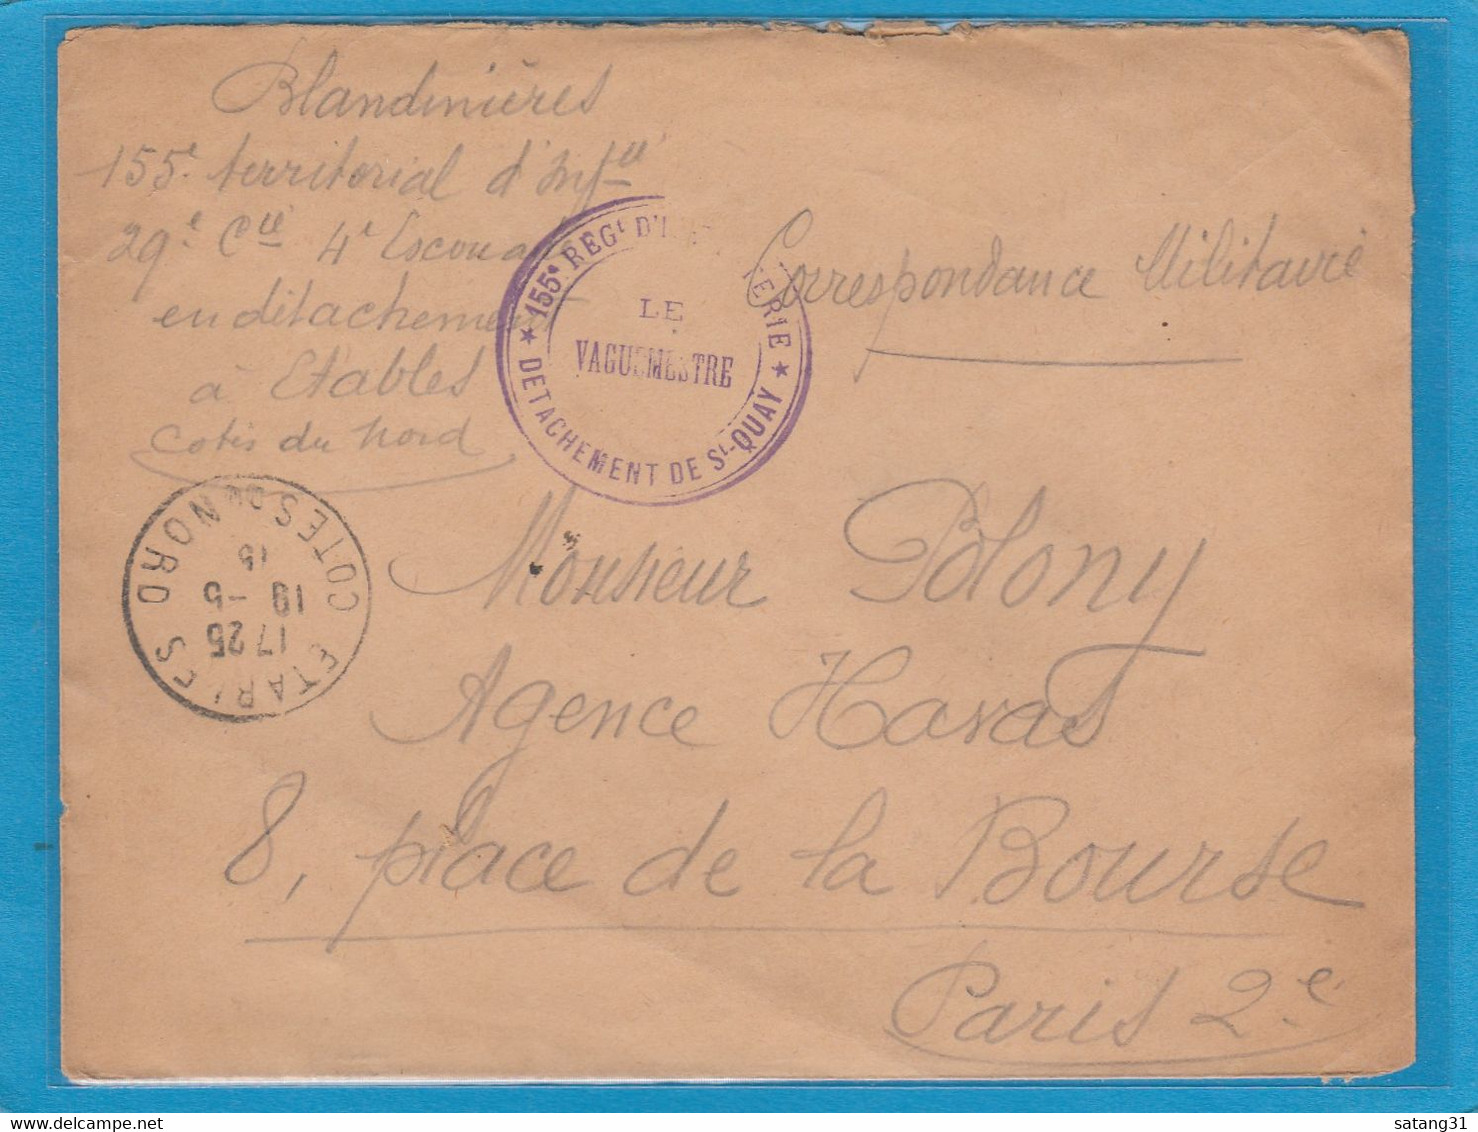 Blandinières
155e territorial d'Infie
29e Cie 4e Escouade
en détachement
à Etables
Côtes du Nord
Correspondance Militaire
★ 155e REGt D'INFANTERIE ★
LE
VAGUEMESTRE
DETACHEMENT DE St-QUAY
ETABLES
COTES DU NORD
17 25
19 -5
15
Monsieur Polony
Agence Havas
8, place de la Bourse
Paris 2e
satang31